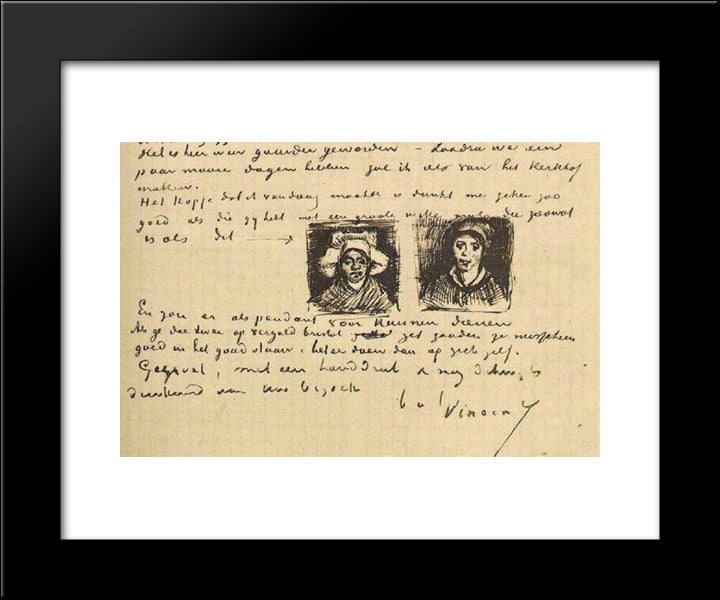 Het is hier weer gauwder geworden – Zoodra we een
paar mooie dagen hebben zal ik iets van het Kerkhof
maken.
Het kopje dat ik vandaag maakte is dunkt me geheel zoo
goed als die gy hebt met een groote witte muts die zoowat
is als dit
En zou er als pendant voor kunnen dienen
Als ge die twee op verguld bristol zet zouden ze misschien
goed in het goud staan, beter doen dan op zich zelf.
Gegroet, met een handdruk & nog
dankend van Uw bezoek
Vincent